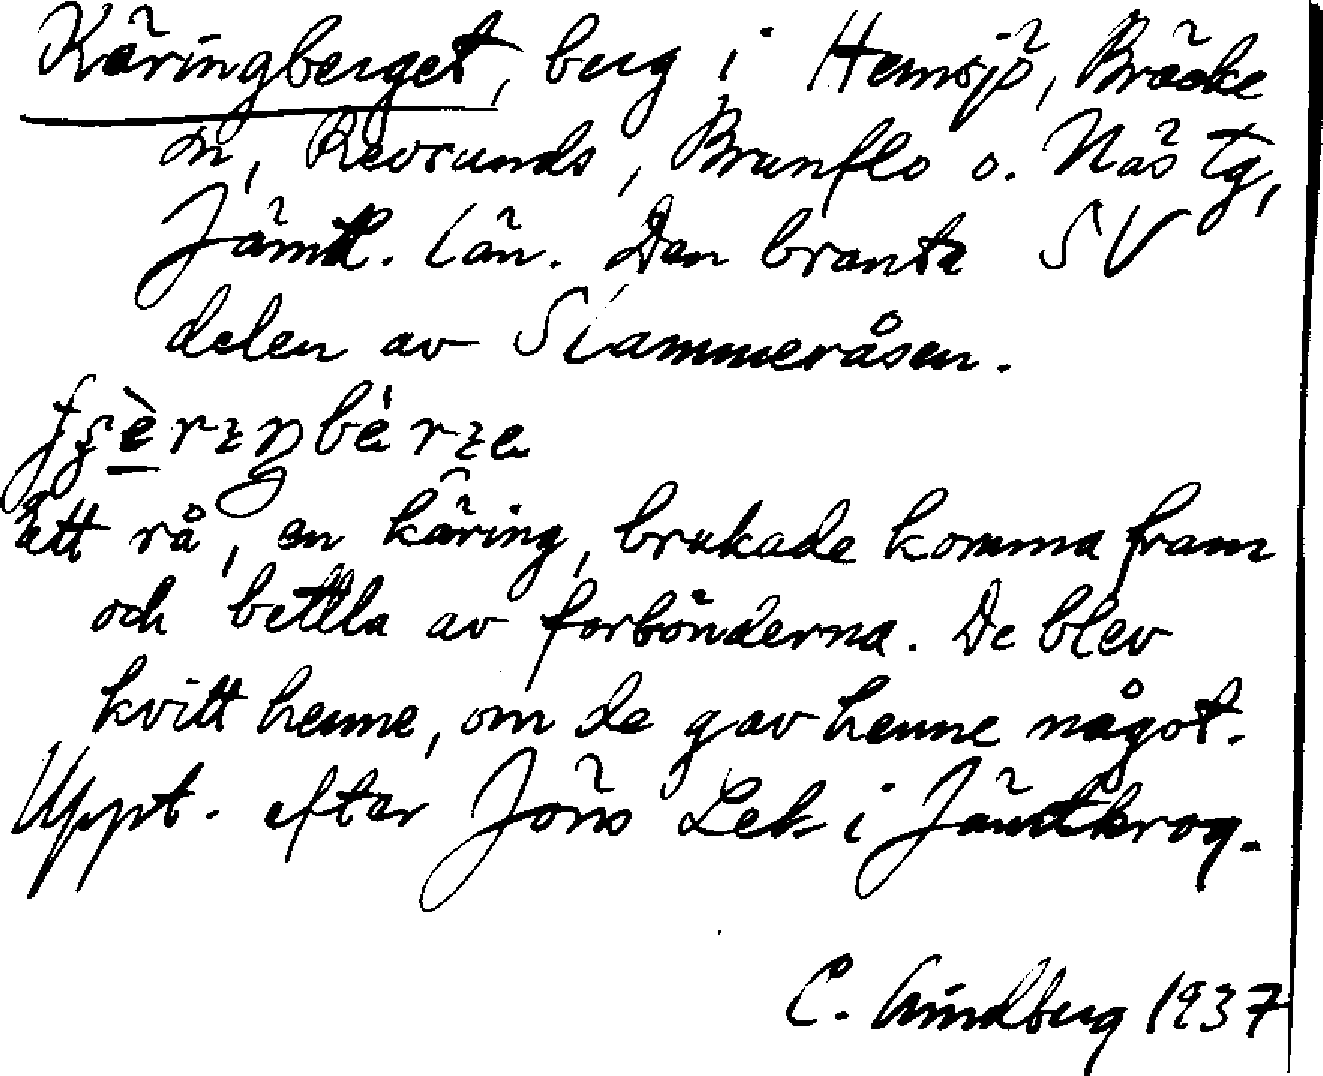 Käringberget, berg i Hemsjö, Bräcke
sn, Revsunds, Brunflo o. Näs tg,
Jämtl. län. Den branta SV
delen av Slammeråsen.
Ett rå, en käring, brukade komma fram
och bettla av forbönderna. De blev
kvitt henne, om de gav henne något.
Uppt. efter Jöns Lek i Jämtkrog.
C. Lindberg 1937